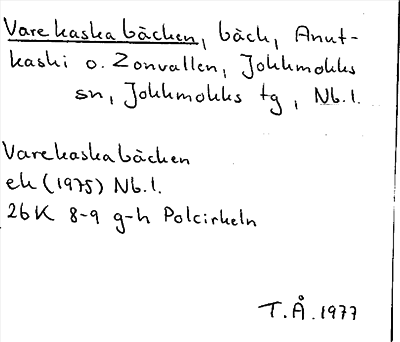 Varekaskabäcken, bäck, Anut-
kaski o. Zonvallen, Jokkmokks
sn, Jokkmokks tg, Nb.l.
Varekaskabäcken
ek (1975) Nb.l.
26K 8-9 g-h Polcirkeln
T.Å. 1977